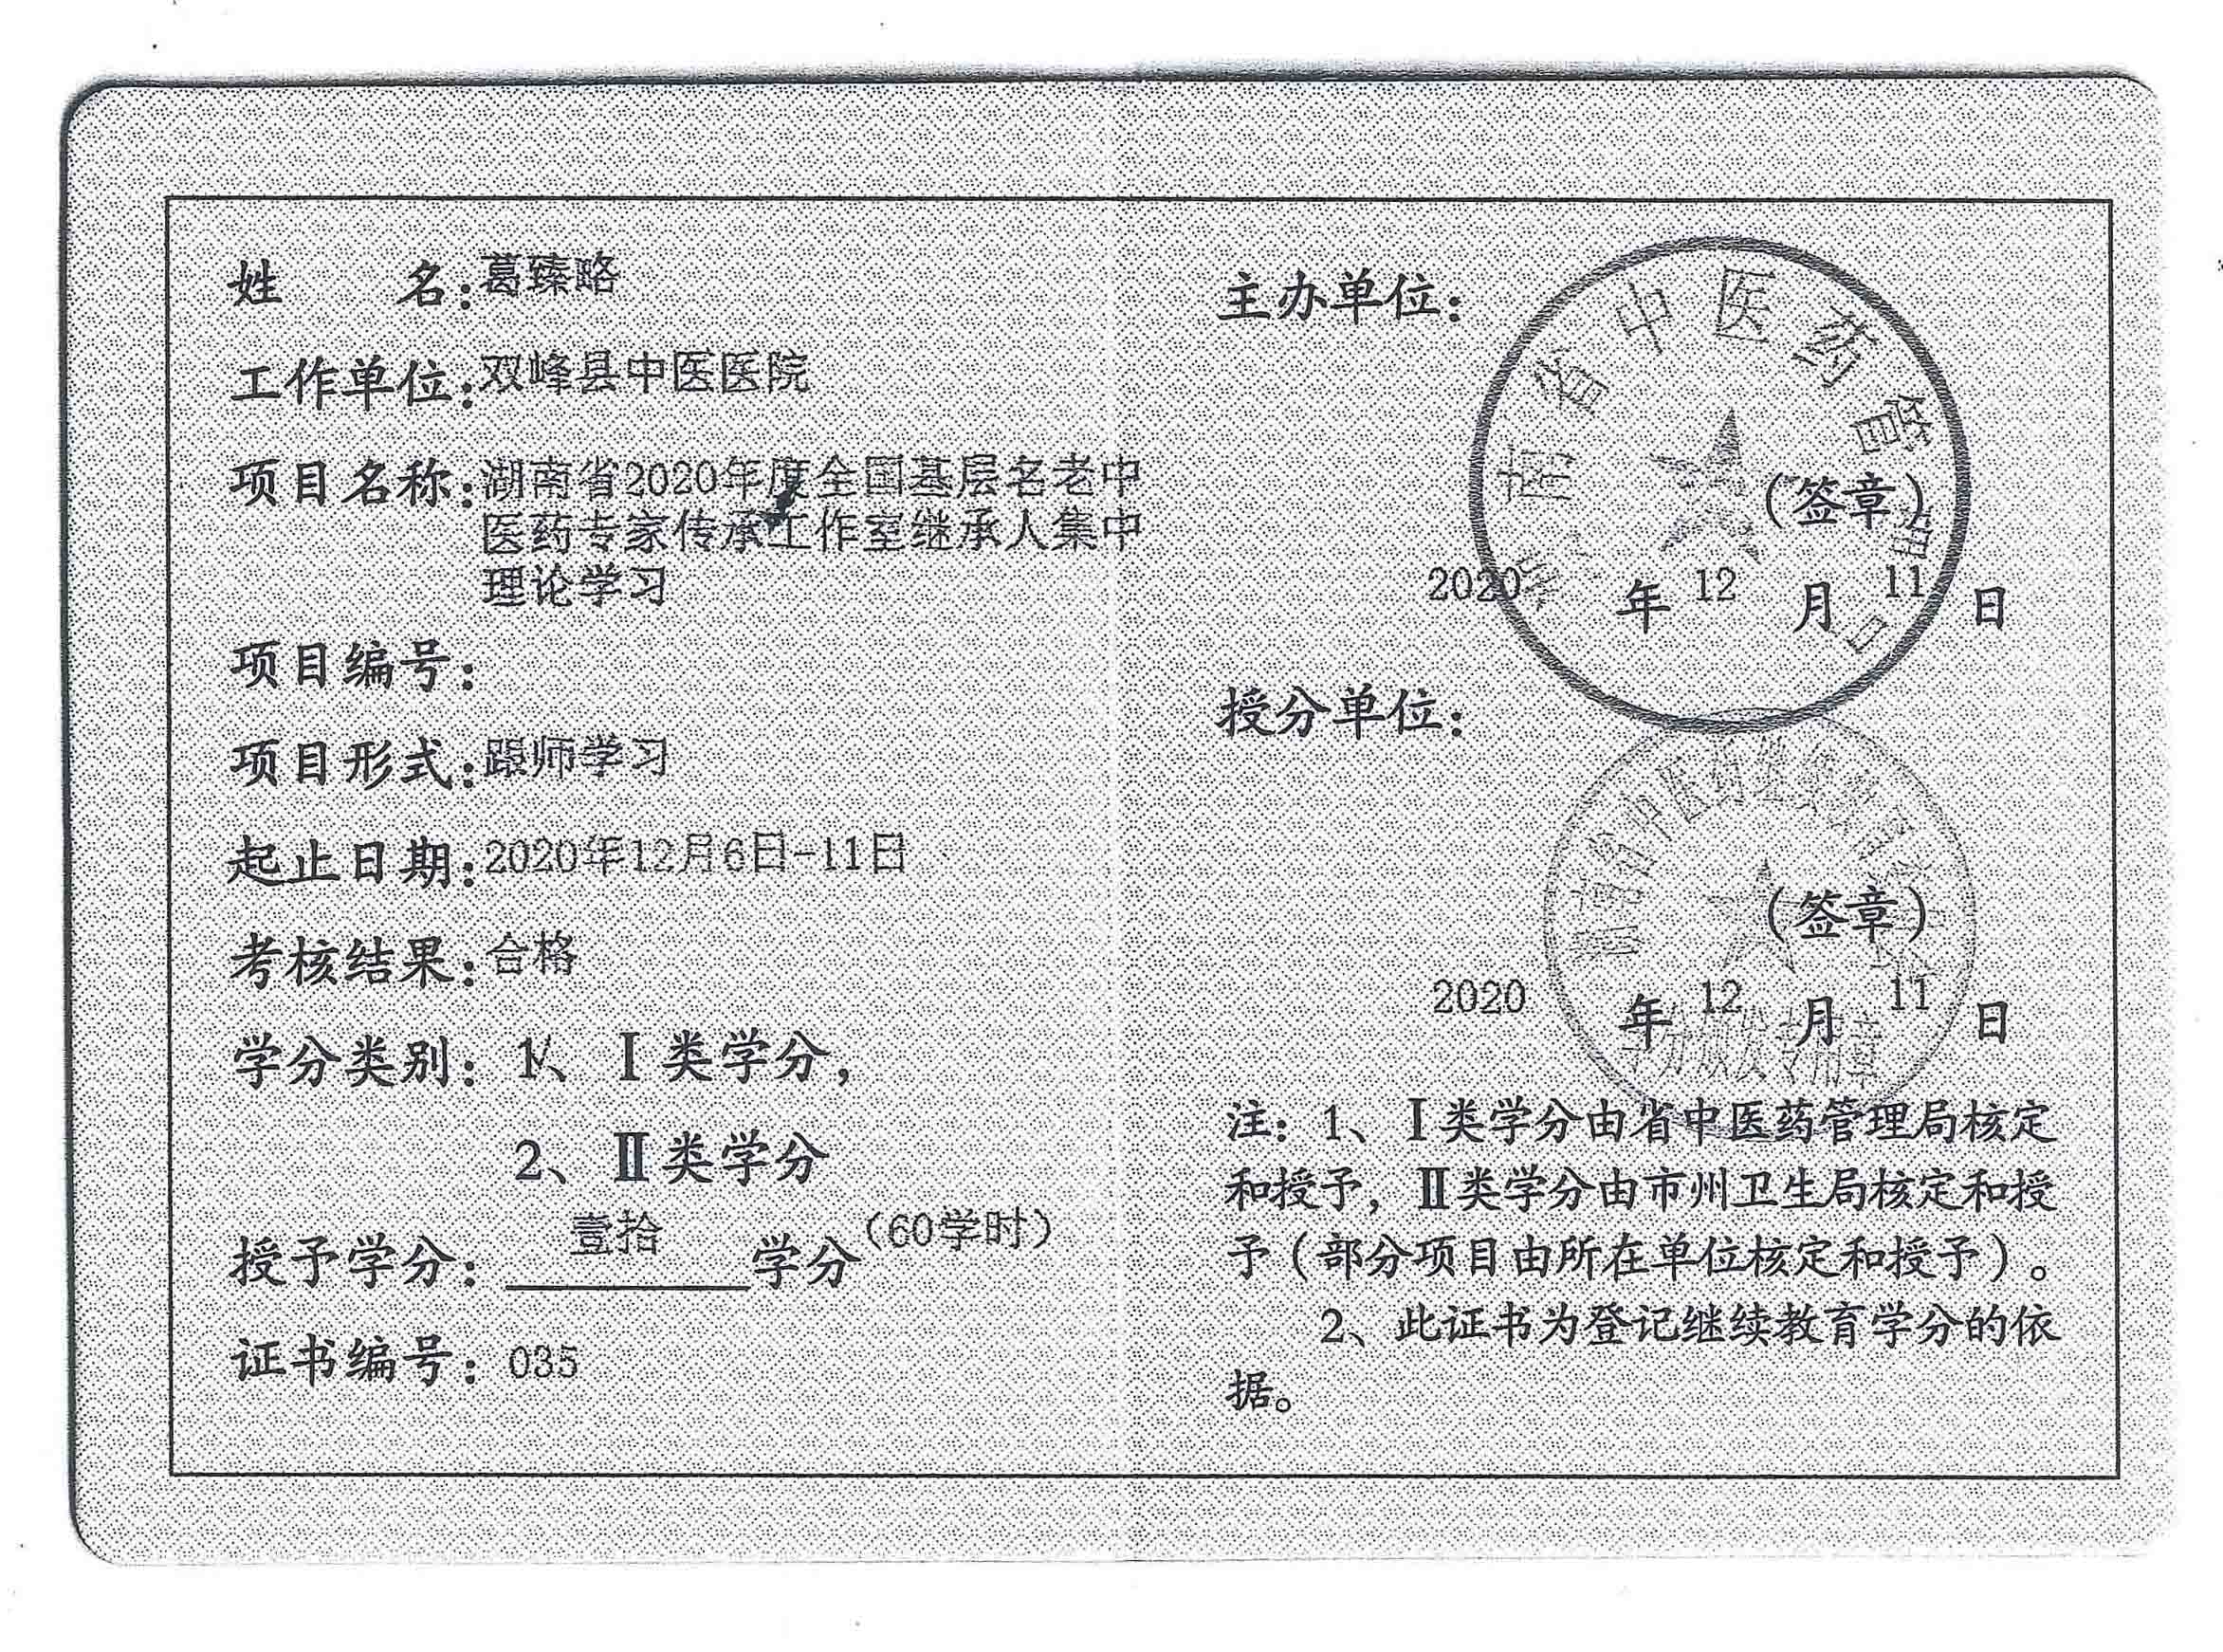 姓　　名：葛臻略
工作单位：双峰县中医医院
项目名称：湖南省2020年度全国基层名老中
医药专家传承工作室继承人集中
理论学习
项目编号：
项目形式：跟师学习
起止日期：2020年12月6日-11日
考核结果：合格
学分类别：1、Ⅰ类学分，
2、Ⅱ类学分
授予学分：壹拾学分（60学时）
证书编号：035
主办单位：
南省中医药管
（签章）
2020年12月11日
授分单位：
（签章）
2020年12月11日
注：1、Ⅰ类学分由省中医药管理局核定
和授予，Ⅱ类学分由市州卫生局核定和授
予（部分项目由所在单位核定和授予）。
2、此证书为登记继续教育学分的依
据。